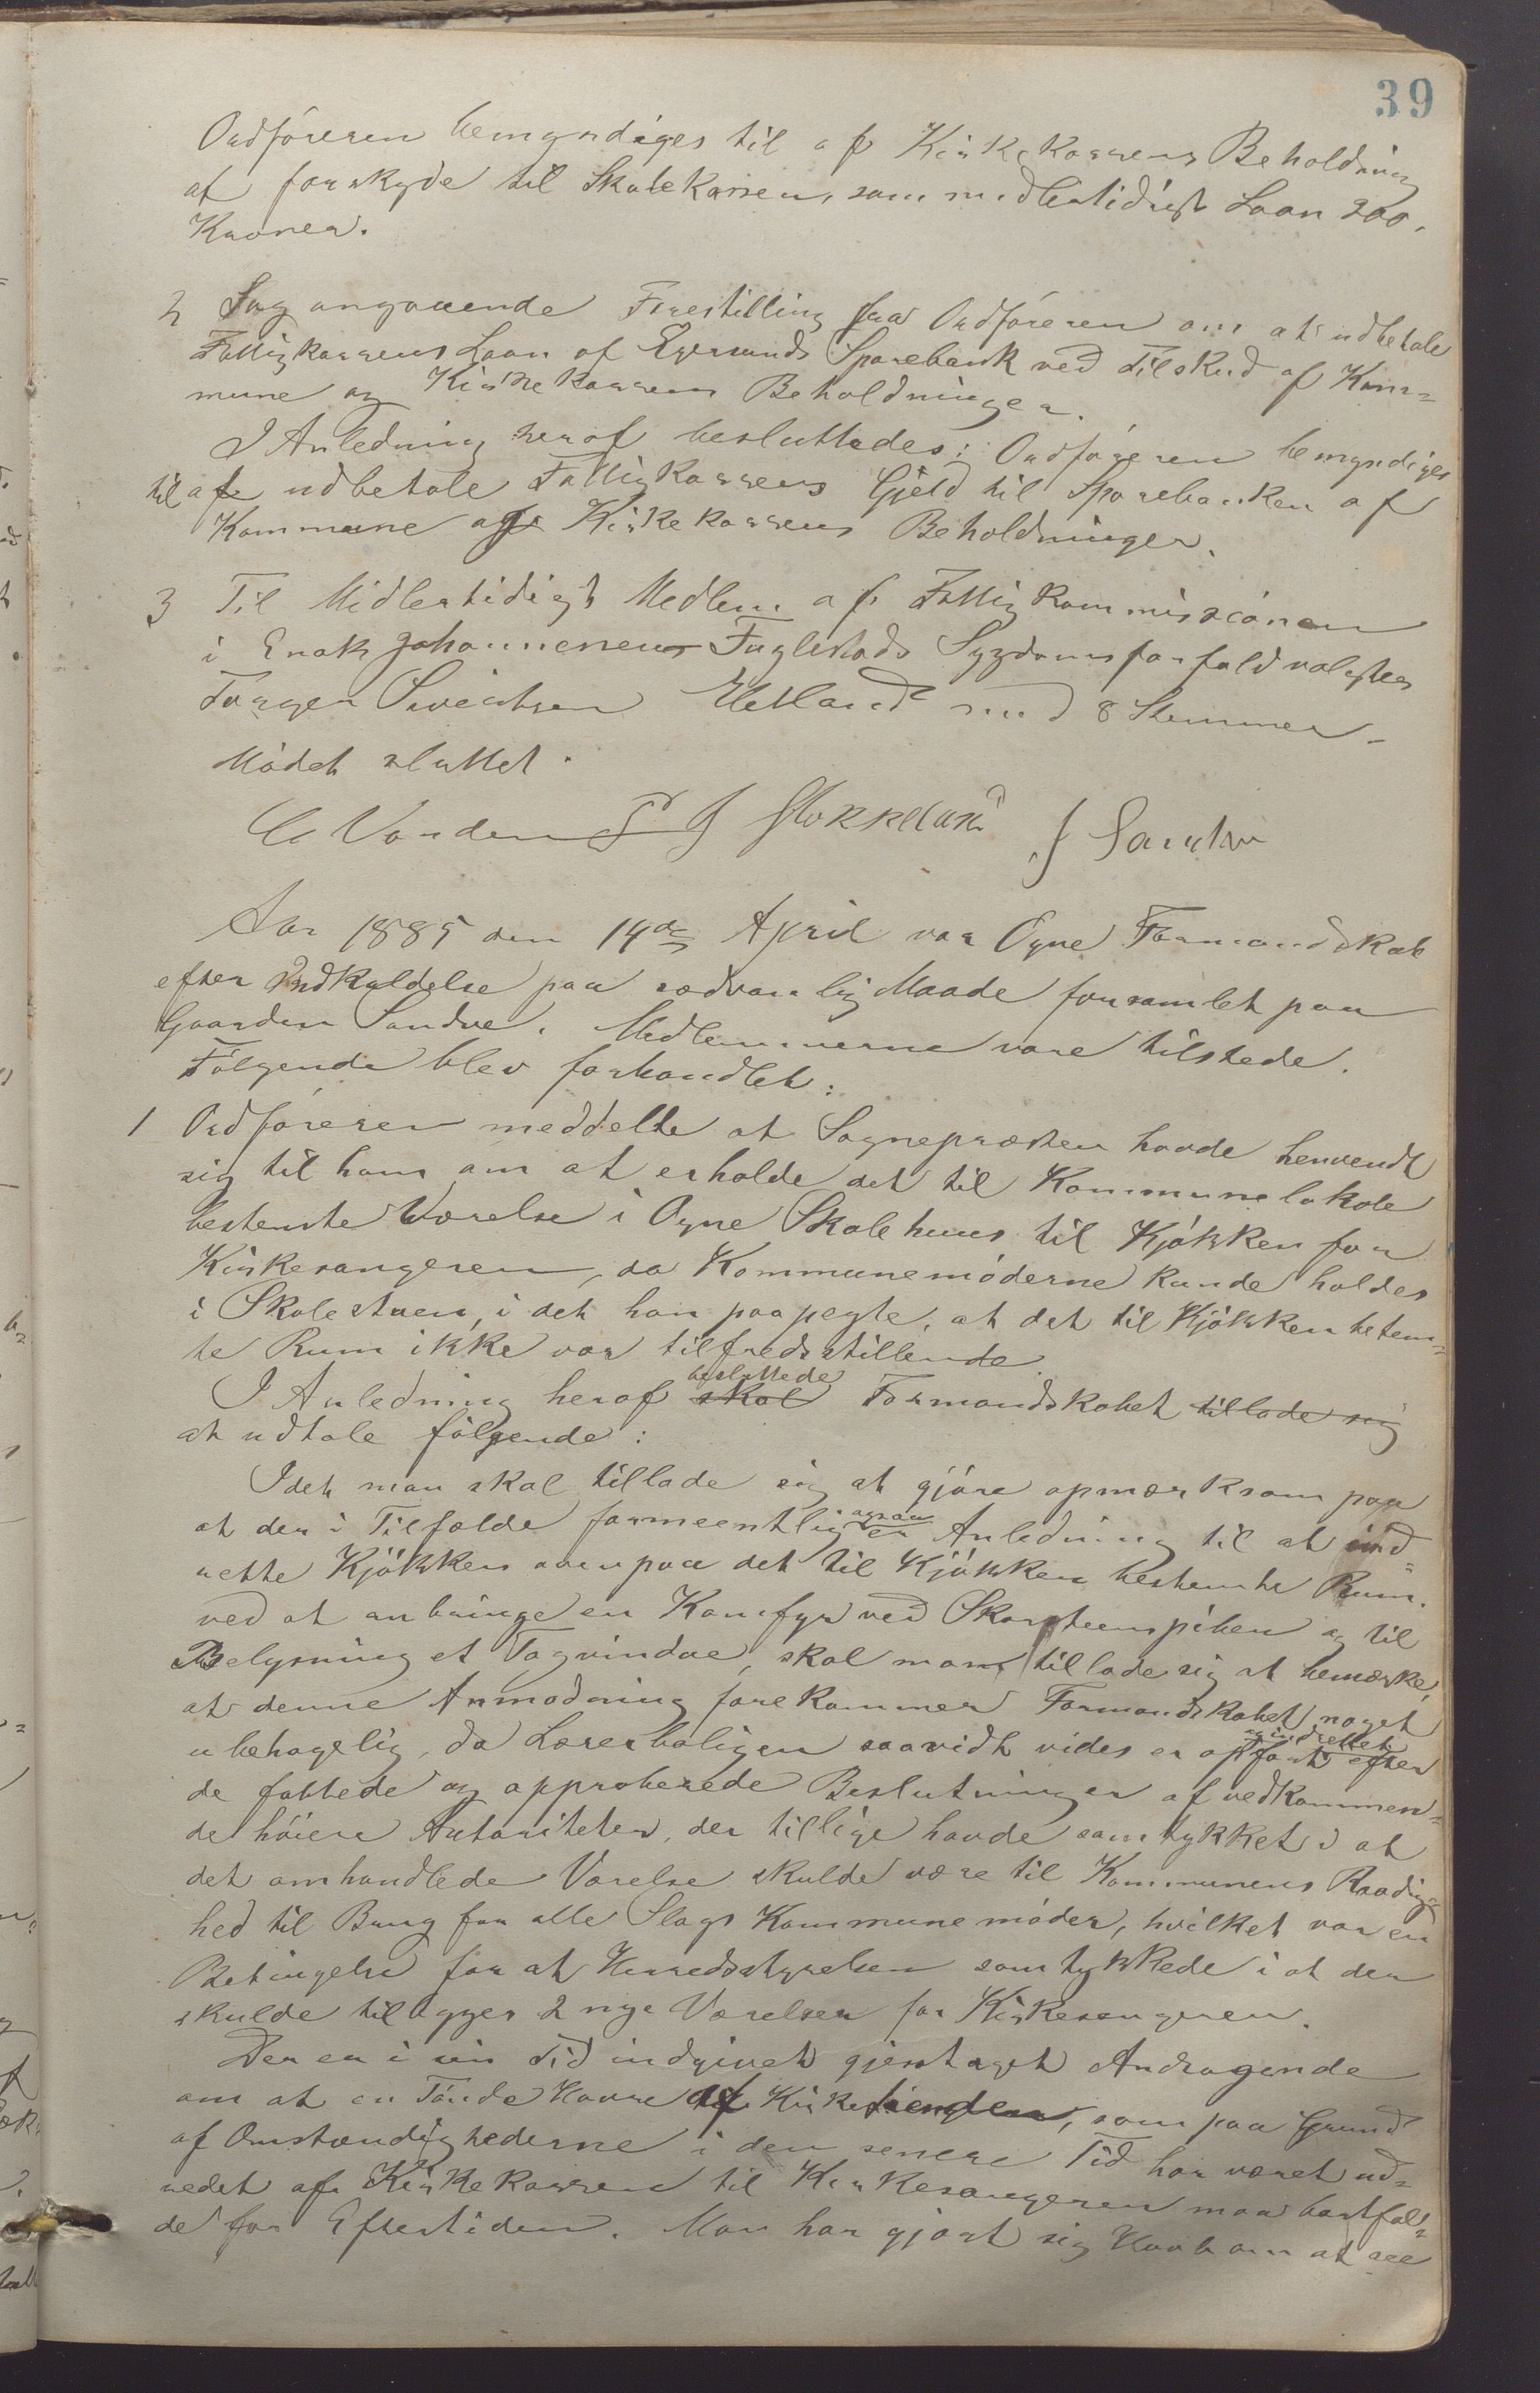 39
Ordføreren bemyndiges til af Kirkekassens Beholdning
at forskyde til Skolekassen, som midlertidigt Laan 200,
Kroner.
2 Sag angaaende Forestilling fra Ordføreren om at udbetale
Fattigkassens Laan af Egersunds Sparebank ved Tilskud af Kom=
mune og Kirkekassens Beholdninger.
I Anledning heraf besluttedes: Ordføreren bemyndiges
til at udbetale Fattigkassens Gjeld til Sparebanken af
Kommune og Kirkekassens Beholdninger.
3 Til Midlertidigt Medlem af Fattigkommissionen
i Enok Johannesens Fuglestads Sygdomsforfald valgtes
Torger Sivertsen Hetland med 8 Stemmer.
Mødet sluttet.
S J Stokkeland J Sandve
Aar 1885 den 14de April var Ogne Formandskab
efter Indkaldelse paa sædvanlig Maade forsamlet paa
Gaarden Sandve. Medlemmerne vare tilstede.
Følgende blev forhandlet:
1 Ordføreren meddelte at Sognepræsten havde henvendt
sig til ham om at erholde det til Kommunelokale
bestemte Værelse i Ogne Skolehuus til Kjøkken for
Kirkesangeren, da Kommunemøderne kunde holdes
i Skolestuen, i det han paapegte, at det til Kjøkken bestem=
te Rum ikke var tilfredsstillende.
I Anledning heraf skal besluttede Formandskabet tillade sig
at udtale følgende:
Idet man skal tillade sig at gjøre opmærksom paa
at der i Tilfælde formeentlig ogsaa er Anledning til at ind=
rette Kjøkken ovenpaa det til Kjøkken bestemte Rum.
ved at anbringe en Komfyr ved Skorsteenspiben og til
Belysning et Tagvindue, skal man tillade sig at bemærke,
at denne Anmodning forekommer Formandskabet noget
ubehagelig, da Lærerboligen saavidt vides er opført og indrettet efter
de fattede og approberede Beslutninger af vedkommen=
de høiere Autoriteter, der tillige havde samtykket i at
det omhandlede Værelse skulde være til Kommunens Raadig=
hed til Brug for alle Slags Kommunemøder, hvilket var en
Betingelse for at Herredsstyrelsen samtykkede i at der
skulde tilbygges 2 nye Værelser for Kirkesangeren.
Der er i sin Tid indgivet gjentaget Andragende
om at en Tønde Havre af Kirketienden, som paa Grund
af Omstændighederne i den senere Tid har været ud=
redet af Kirkekassen til Kirkesangeren maa bortfal=
de for Eftertiden. Man har gjort sig Haab om at see